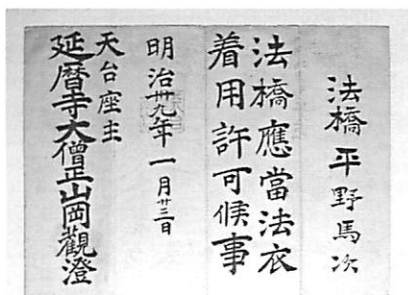 法橋平野馬次
法橋應當法衣
着用許可候事
明治卅九年一月廿三日
天台座主
延暦寺大僧正山岡觀澄